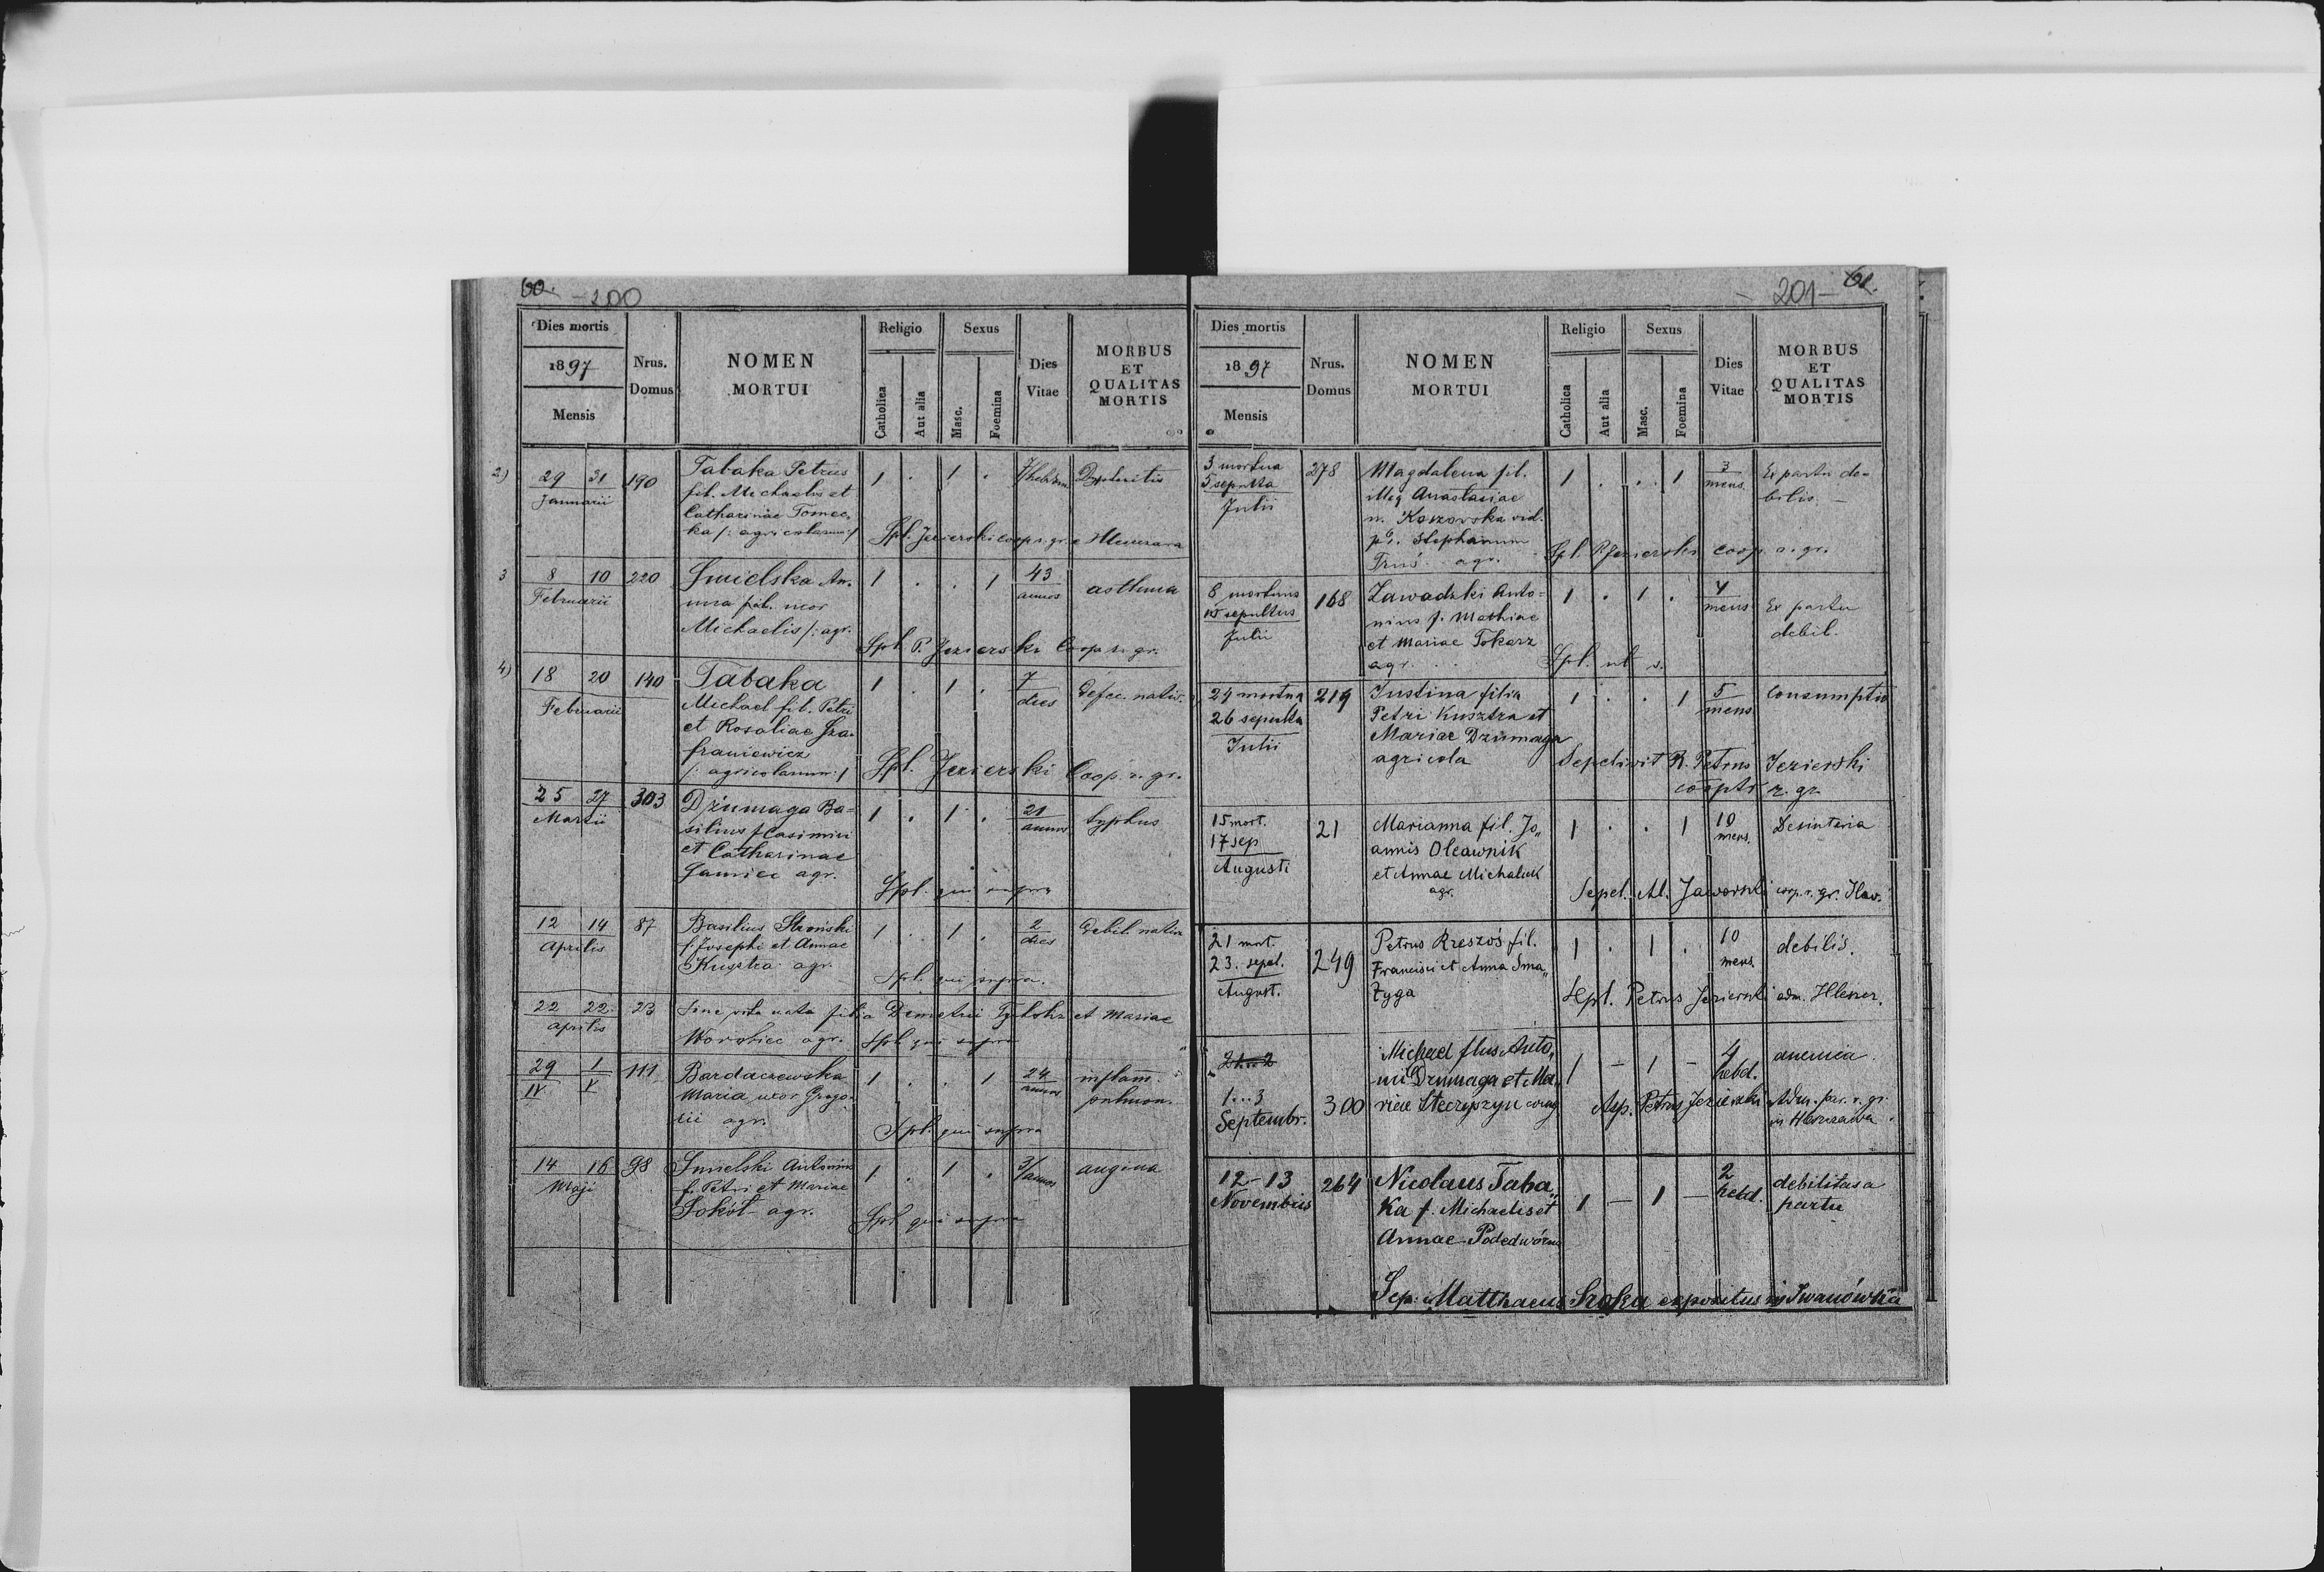 60.
- 200
Dies mortis
1897
Mensis
Nrus.
Domus
NOMEN
MORTUI
Religio
Catholica
Aut alia
Sexus
Masc.
Foemina
Dies
Vitae
MORBUS
ET
QUALITAS
MORTIS
2) 29 31 190 Tabaka Petrus 1 . 1 .
Januarii fil. Michaelis et
Catharinae Tomec-
ka /: agricolarum :/ Spl. Jezierski coop r. gr.
3 8 10 220 Smielska An- 1 . . 1 43 asthma
Februarii na fil. uxor annos
Michaelis /: agr.
Spl. P. Jezierski Coop r. gr.
4) 18 20 140 Tabaka 1 . 1 . 7
Februarii Michael fil. Petri dies
et Rosaliae Sza-
franiewicz
/: agricolarum :/ Spl. Jezierski Coop. r. gr.
25 27 303 Dżumaga Ba- 1 . 1 . 21 typhus
Martii silius f Casimiri annos
et Catharinae
agr.
Spl. qui supra
12 14 87 Basilius Stroński 1 . 1 . 2
Aprilis f. Josephi et Annae dies
Kusztra agr.
Spl. qui supra.
22 22 23 Sine vita nata filia Demetrii et Mariae
Aprilis Worobiec agr. Spl. qui supra
29 1 111 Bardaczewska 1 . . 1 24 inflam.
IV V Maria uxor Grego- annos pulmon.
rii agr.
Spl. qui supra
14 16 98 Smielski Antonius 1 . 1 . 3/annos angina
Maji f. Petri et Mariae
Sokół agr.
Spl. qui supra
- 201 -
61.
Dies mortis
1897
Mensis
Nrus.
Domus
NOMEN
MORTUI
Religio
Catholica
Aut alia
Sexus
Masc.
Foemina
Dies
Vitae
MORBUS
ET
QUALITAS
MORTIS
3 mortua 278 Magdalena fil. 1 . . 1 3 Ex partu de-
5 sepulta Anastasiae mens. bilis. -
Julii n. Kozovska vid.
Stephanum
Truś agr. Spl. P. Jezierski coop. r. gr.
8 mortuus 168 Zawadzki Anto- 1 . 1 . 4 Ex partu
sepultus nius f. Mathiae mens debil.
Julii et Mariae Tokarz
agr. Spl. ut s.
24 mortua 219 Justina filia 1 . . 1 5 Consumptio
26 sepulta Petri Kusztra et mens
Julii Mariae Dzumaga
agricola Sepelivit R. Petrus Jezierski
r. gr.
15 mort. 21 Marianna fil. Jo„ 1 . . 1 10 Desinteria
17 sep annis Oleawnik mens.
Augusti et Annae Michaluk
agr. Sepel. Al. Jaworski coop. r. gr. Hlav.
21 mort. 249 Petrus Rzeszoś fil. 1 . 1 . 10 debilis.
23. sepel. Francisci et Anna Sma„ mens.
August. żyga Sepl. Petrus Jezierski adm.
Michael flus Anto„ 1 - 1 - 4 anemia
1...3 300 ni Drumaga et Ma„ hebd.
Septembr. riae Petrus Jezierski Adm. par. r. gr.
12-13 264 Nicolaus Taba„ 1 - 1 - 2 debilitas a
Novembris ka f. Michaelis et hebd. partu
Annae Podedwórna
Sep: Matthaeus Sroka expositus in Iwanówka